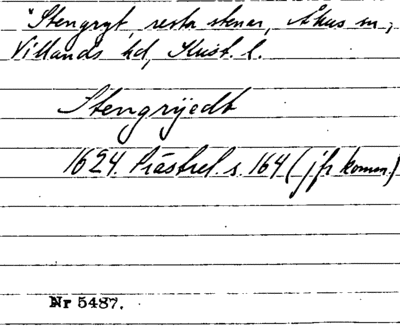 "Stengryt, resta stenar, Åhus sn,
Villands hd, Krist. l.
Stengrijedt
1624. Prästrel. s. 164 (jfr komm.)
Nr 5487.